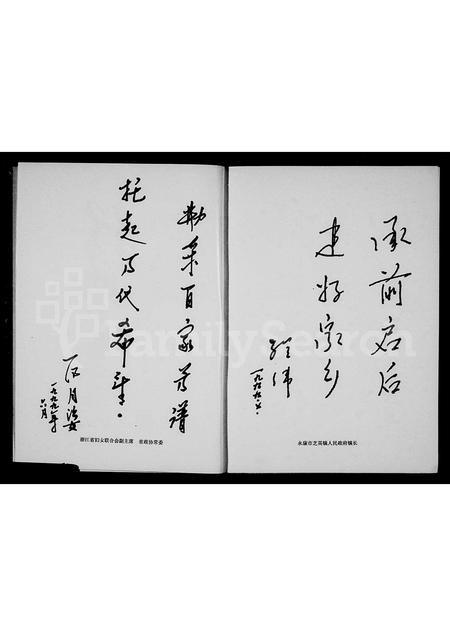 承前启后
建好家乡
经伟
一九九九.六.
永康市芝英镇人民政府镇长
勤采百家万谱
托起万代希望.
一九九九年
六月
浙江省妇女联合会副主席 省政协常委
FamilySearch